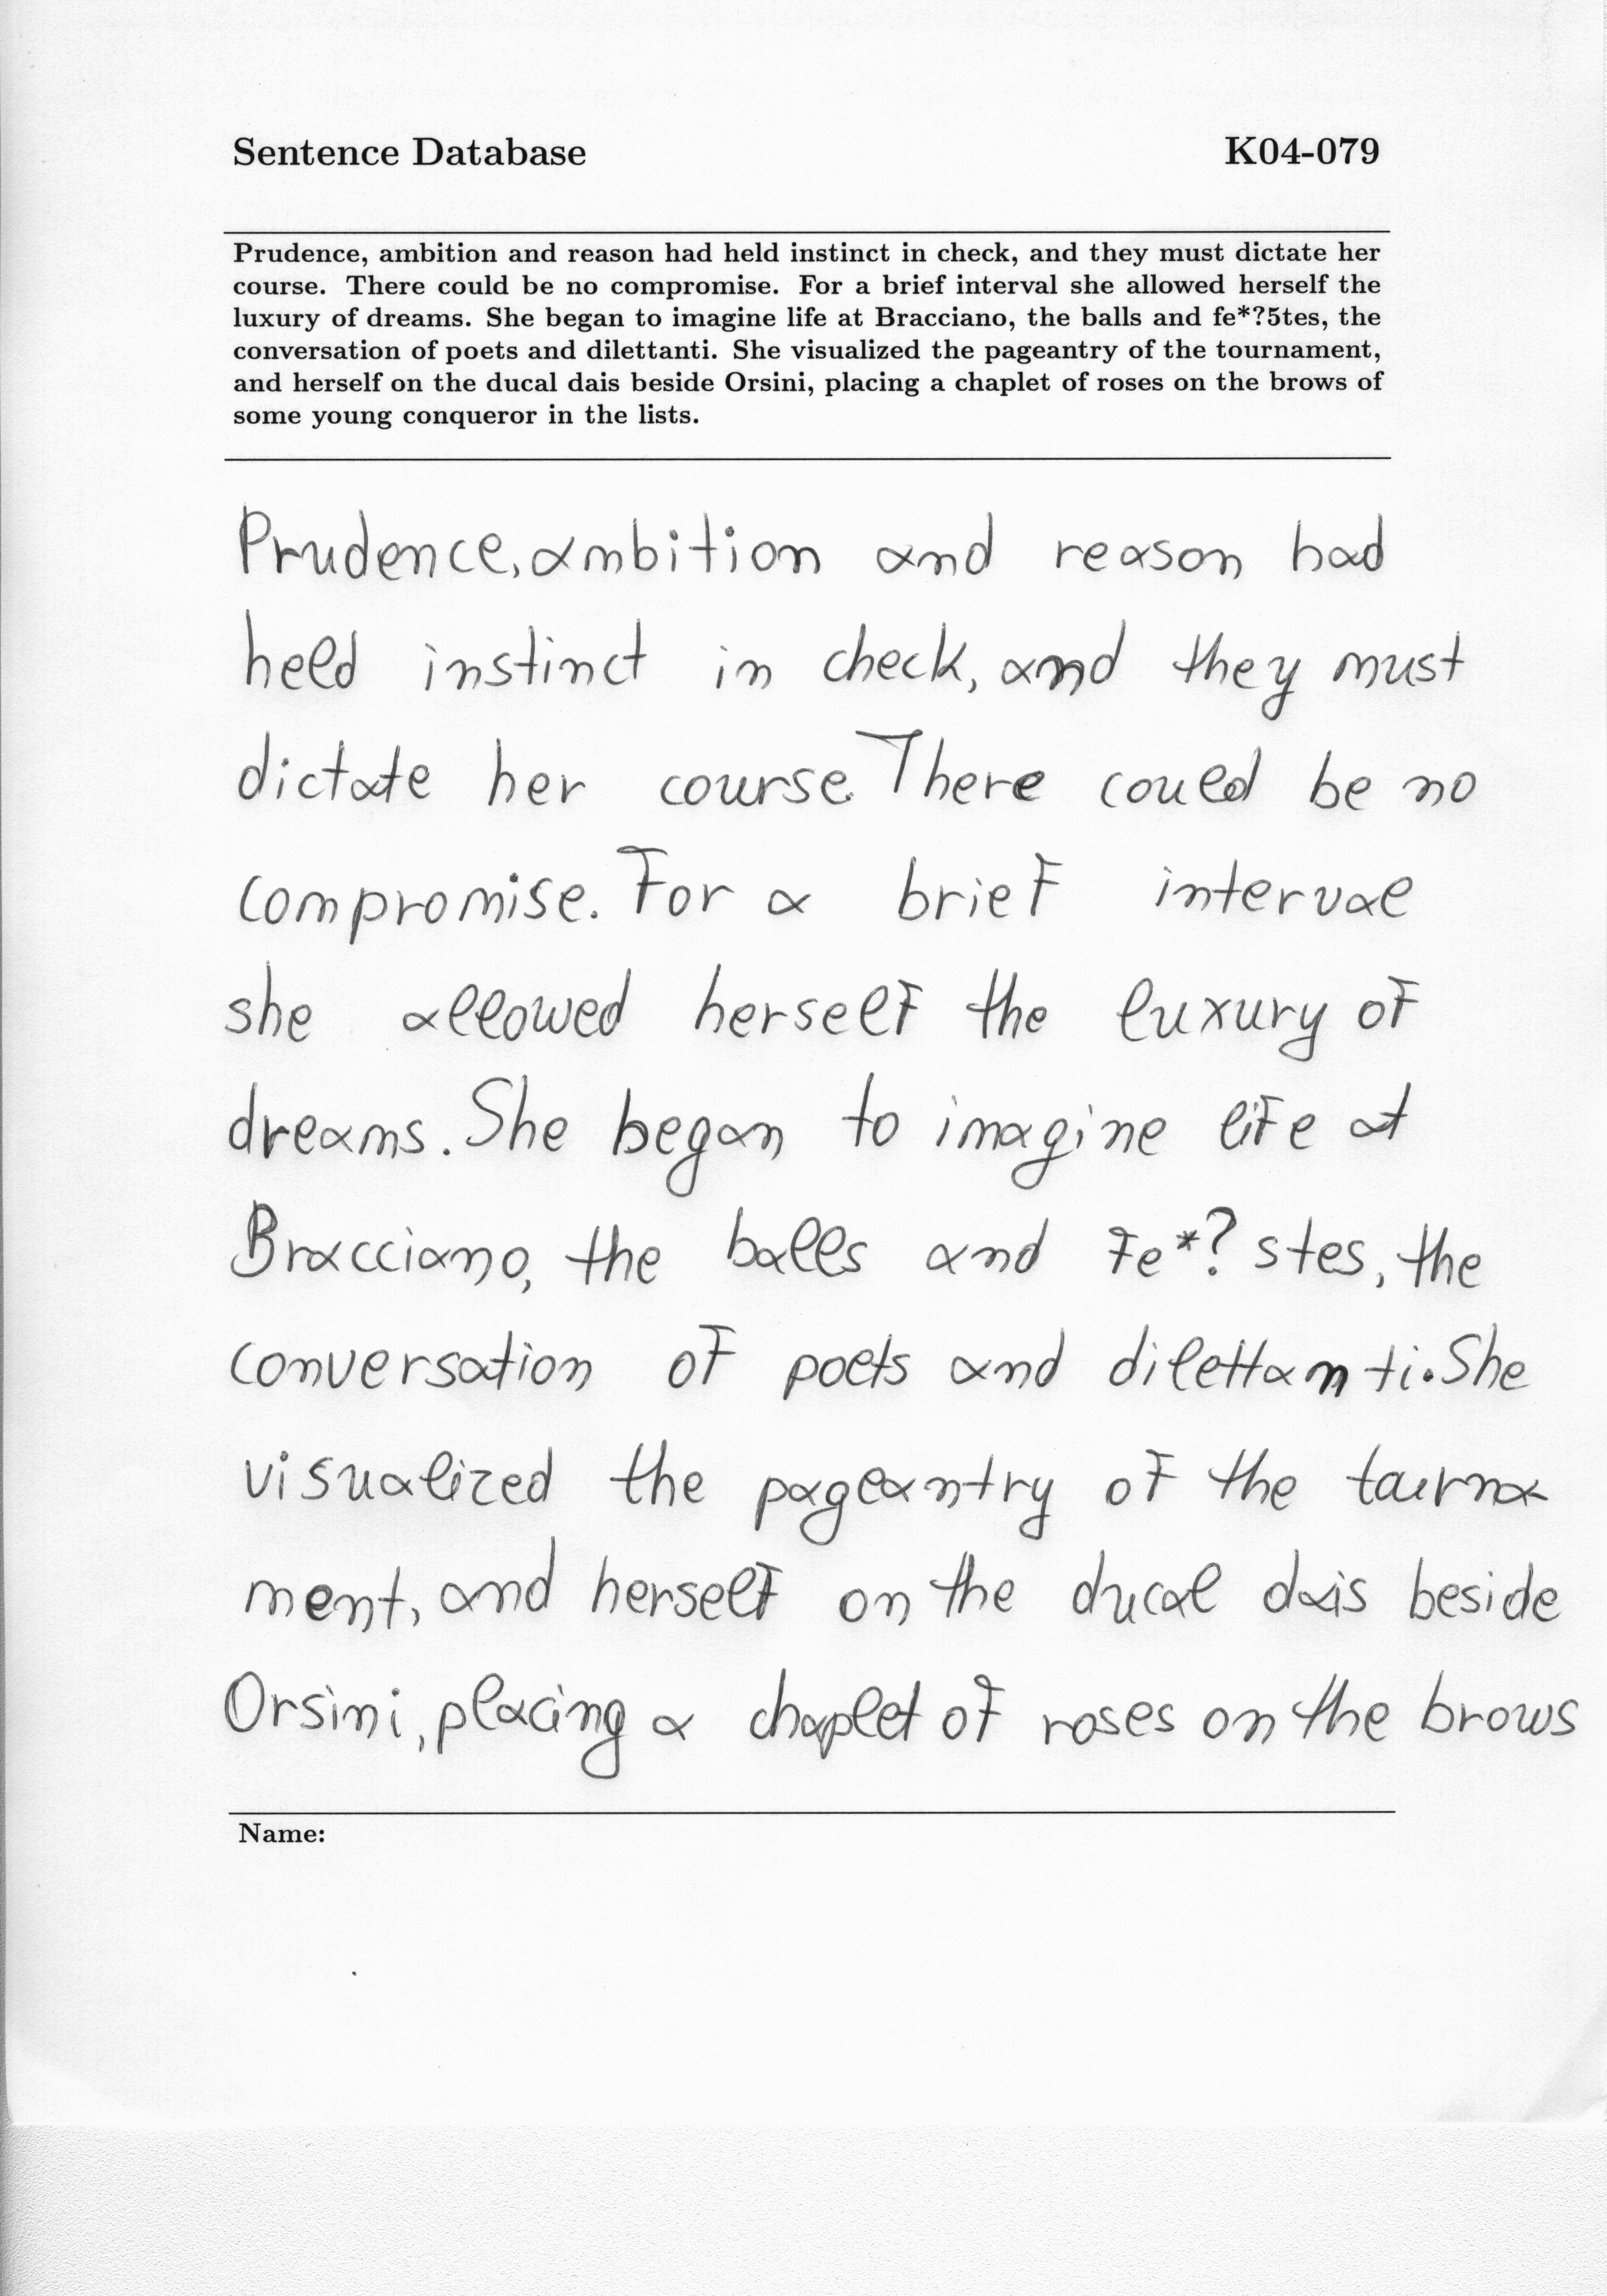 Sentence Database K04-079
Prudence, ambition and reason had held instinct in check, and they must dictate her
course. There could be no compromise. For a brief interval she allowed herself the
luxury of dreams. She began to imagine life at Bracciano, the balls and fe*?5tes, the
conversation of poets and dilettanti. She visualized the pageantry of the tournament,
and herself on the ducal dais beside Orsini, placing a chaplet of roses on the brows of
some young conqueror in the lists.
Prudence, ambition and reason had
held instinct in check, and they must
dictate her course. There could be no
compromise. For a brief interval
she allowed herself the luxury of
dreams. She began to imagine life at
Bracciano, the balls and fe*? stes, the
conversation of poets and dilettanti. She
visualized the pageantry of the tourna
ment, and herself on the ducal dais beside
Orsini, placing a chaplet of roses on the brows
Name: